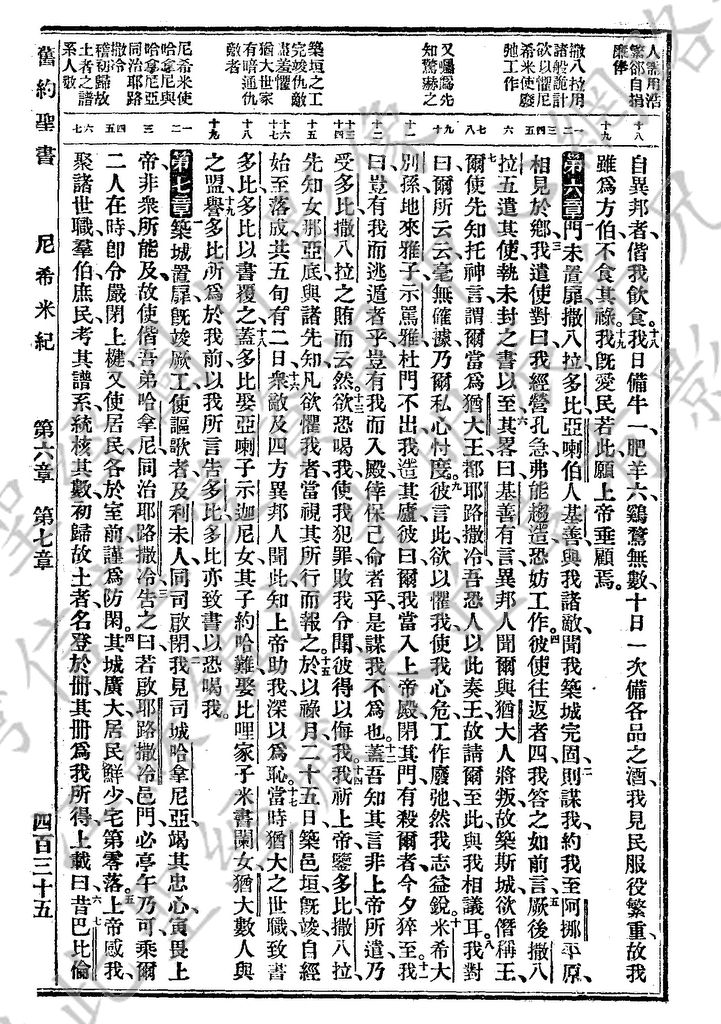 舊約聖書
尼希米紀
第六章 第七章
四百三十五
人需用浩
繁卻自捐
廉俸
十八
十九
撒八拉用
諸般詭計
欲以懼尼
希米使廢
弛工作
一二
三四
五
六
七八
又囑爲先
知驚赫之
九
十
十一
十二
十三十四
築垣之工
完竣仇敵
肅羞懼
猶大世家
有暗通仇
敵者
十五
十六
十七
十八
十九
尼希米使
哈拿尼與
哈拿尼亞
同治耶路
撒冷
稽初歸故
土者之譜
系人數
一二
三
四五
六
七
自異邦者偕我飮食、十八我日備牛一肥羊六、鷄鶩無數、十日一次備各品之酒、我見民服役繁重、故我
雖爲方伯、不食其祿、十九我旣愛民若此、願上帝垂顧焉。
第六章 門未置扉、撒八拉多比亞喇伯人基善、與我諸敵、聞我築城完固、二則謀我、約我至阿挪平原、
相見於鄉、三我遣使對曰、我經營孔急、弗能趨造、恐妨工作、四彼使往返者四、我答之如前言、五厥後撒八
拉五遣其使、執未封之書以至、六其畧曰、基善有言、異邦人聞爾與猶大人將叛、故築斯城、欲僭稱王、
七爾使先知托神言、謂爾當爲猶大王、都耶路撒冷、吾恐人以此奏王、故請爾至此、與我相議耳、八我對
曰、爾所云云、毫無確據、乃爾私心忖度、九彼言此欲以懼我、使我心危、工作廢弛、然我志益銳、十米希大
別孫、地來雅子示罵雅、杜門不出、我造其廬、彼曰、爾我當入上帝殿、閉其門、有殺爾者今夕猝至、十一我
曰、豈有我而逃遁者乎、豈有我而入殿倖保己命者乎、是謀我不爲也、十二蓋吾知其言、非上帝所遣、乃
受多比撒八拉之賄而云然、十三欲恐喝我、使我犯罪、敗我令聞、彼得以侮我、十四我祈上帝鑒多比撒八拉、
先知女那亞底、與諸先知、凡欲懼我者、當視其所行而報之、十五於以祿月二十五日、築邑垣旣竣、自經
始至落成、共五旬有二日、十六衆敵及四方異邦人聞此、知上帝助我、深以爲恥、十七當時猶大之世職、致書
多比、多比以書覆之、十八蓋多比娶亞喇子示迦尼女、其子約哈難娶比哩家子米書闌女、猶大數人與
之盟、十九譽多比所爲於我前、以我所言告多比、多比亦致書以恐喝我。
第七章 築城置扉旣竣、厥工使謳歌者及利未人同司啟閉、二我見司城哈拿尼亞竭其忠心、寅畏上
帝、非衆所能及、故使偕吾弟哈拿尼同治耶路撒冷、三告之曰、若啟耶路撒冷邑門、必亭午乃可、乘爾
二人在時、卽令嚴閉上楗、又使居民各於室前、謹爲防閑、四其城廣大、居民鮮少、宅第零落、五上帝感我、
聚諸世職羣伯庶民、考其譜系、統核其數、初歸故土者、名登於册、其册爲我所得、六上載曰、七昔巴比倫